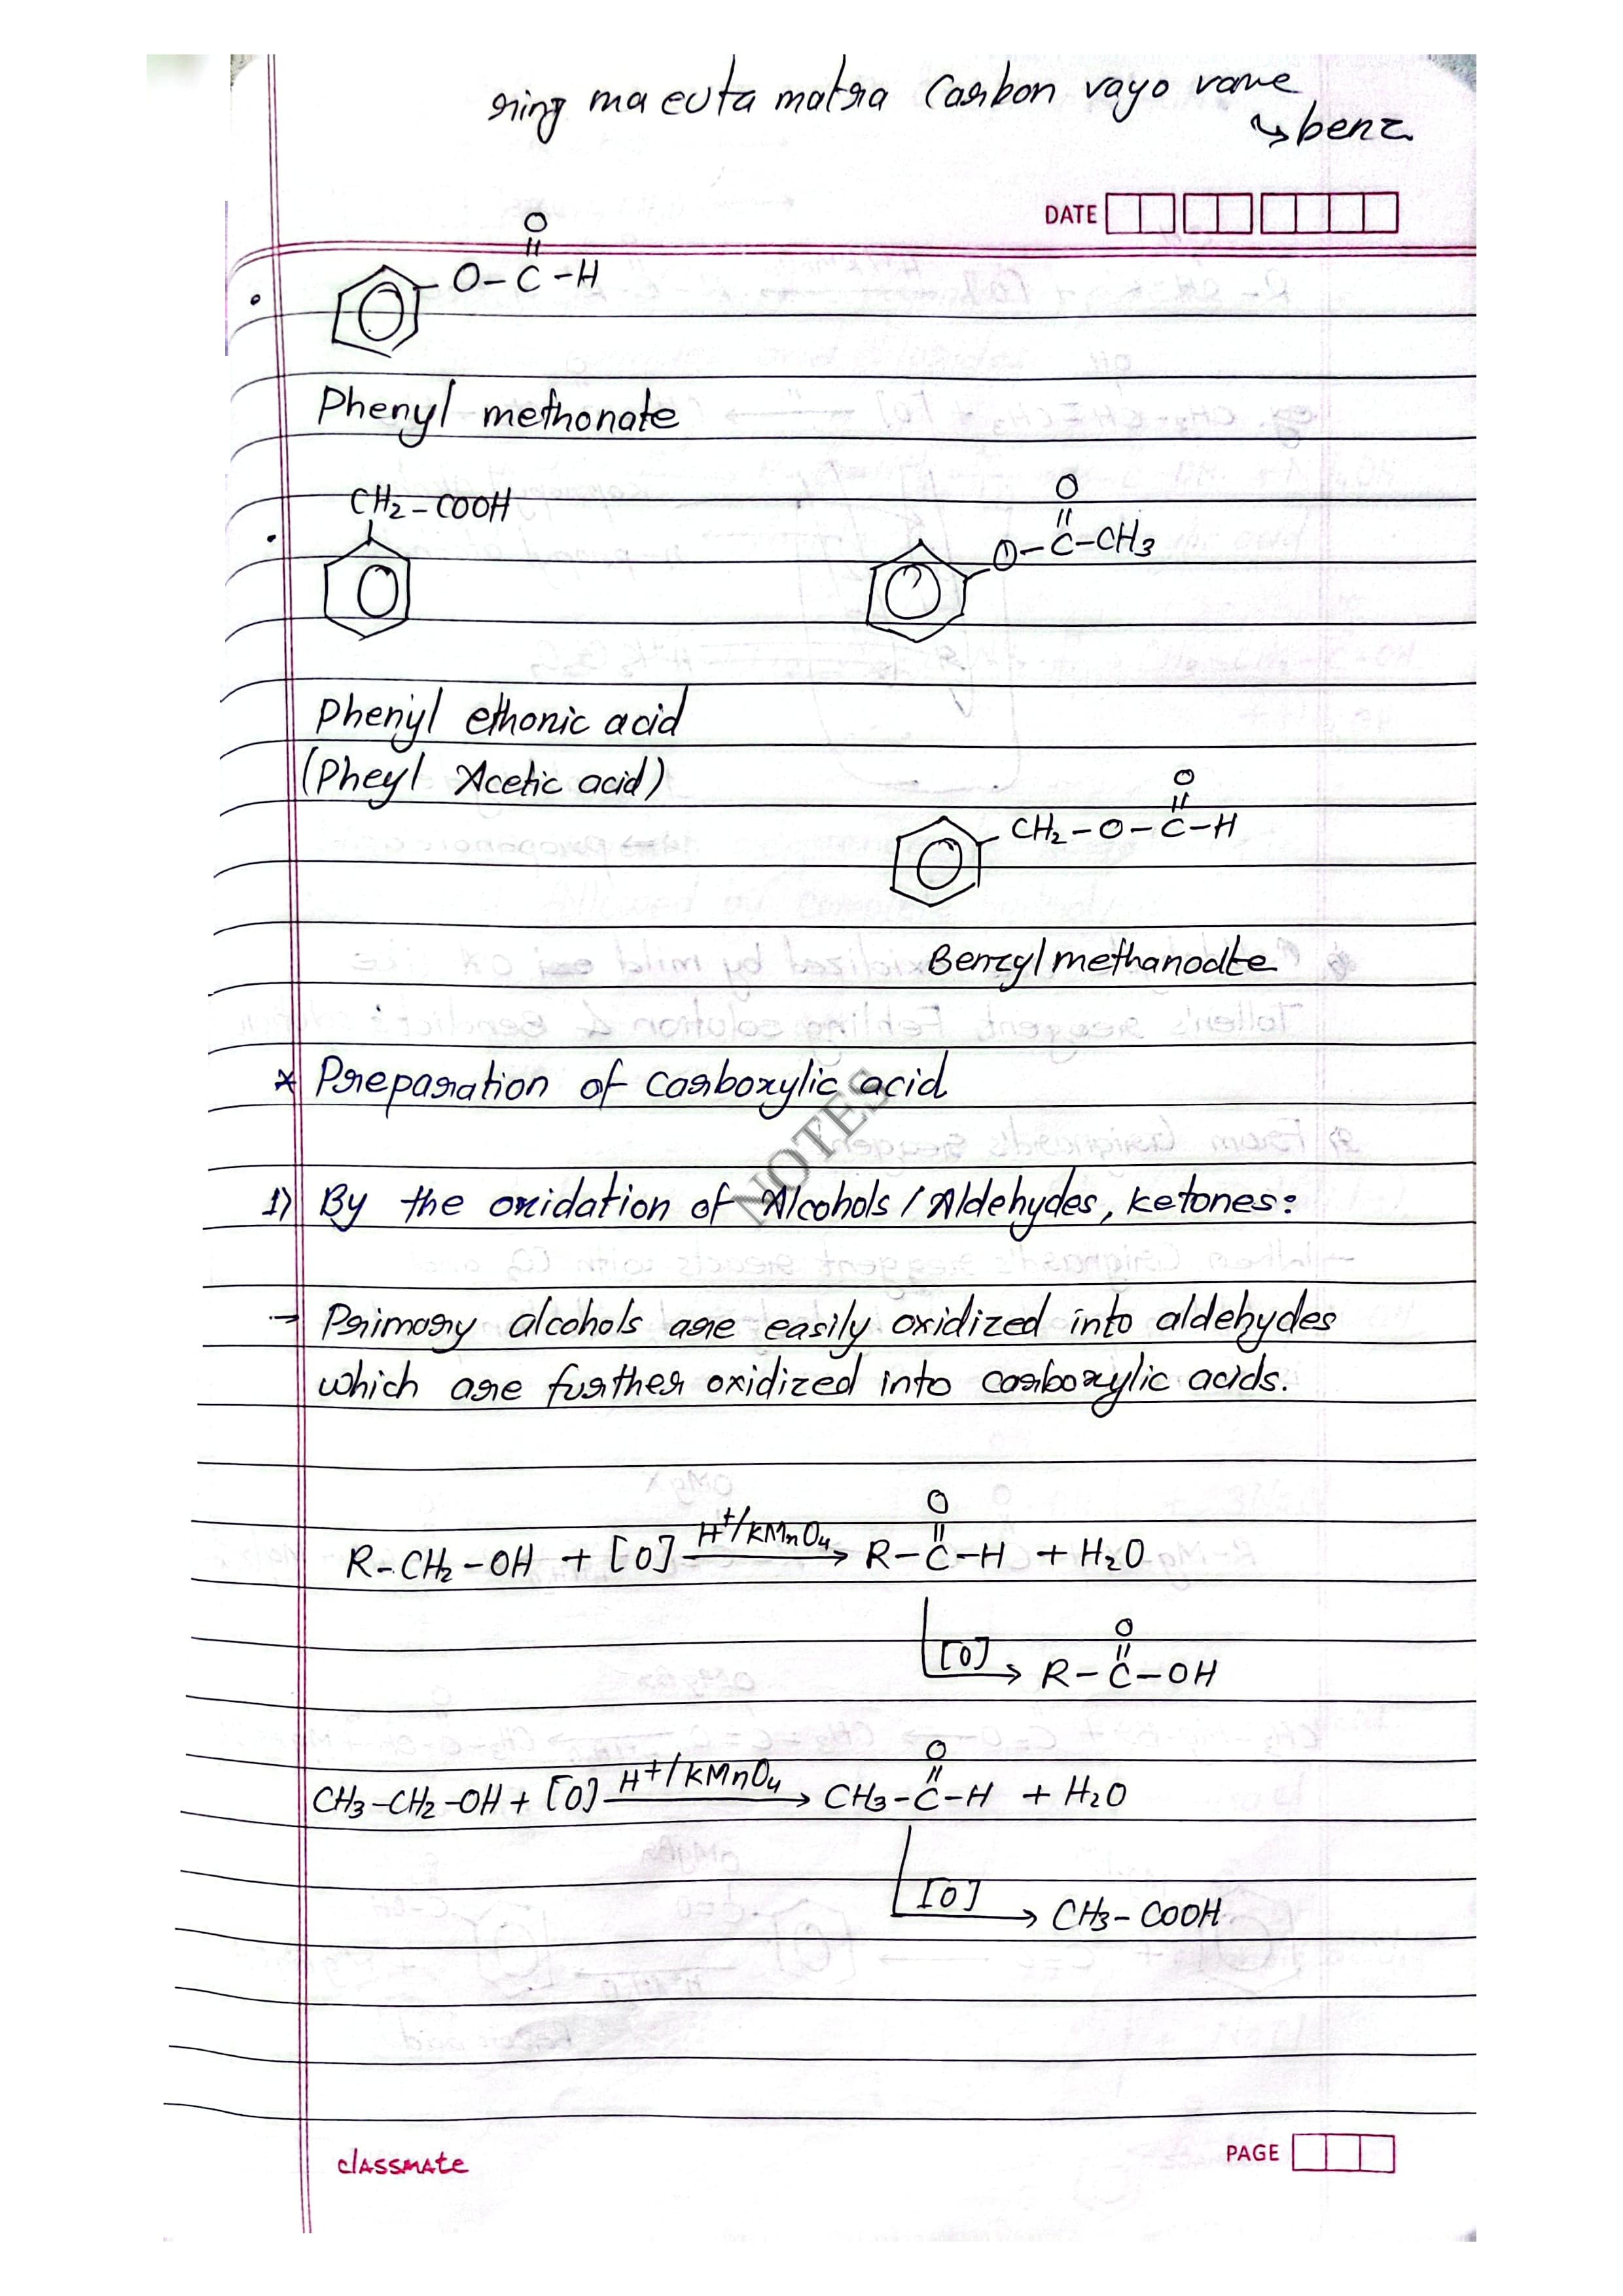 ring ma euta matra Carbon vayo vane
↳ benz
DATE
O
||
O-C-H
Phenyl methonate
CH2-COOH
O
||
O-C-CH3
Phenyl ethonic acid
(Pheyl Acetic acid)
O
||
CH2-O-C-H
Benzyl methanoate
* Preparation of carboxylic acid
NOTES
1) By the oxidation of Alcohols / Aldehydes, ketones:
→ Primary alcohols are easily oxidized into aldehydes
which are further oxidized into carboxylic acids.
O
||
R-CH2-OH + [O] H+/KMnO4 → R-C-H + H2O
O
||
[O] → R-C-OH
O
||
CH3-CH2-OH + [O] H+/KMnO4 → CH3-C-H + H2O
[O] → CH3-COOH
classmate
PAGE